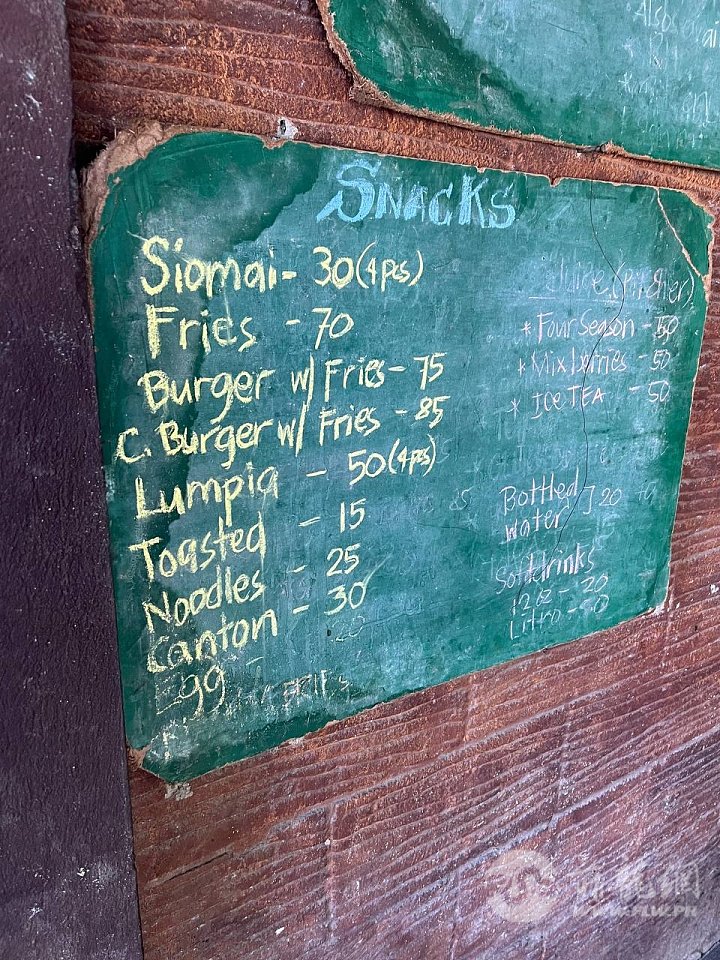 Also
SNACKS
Siomai - 30 (4pcs)
Fries - 70
Burger w/ Fries - 75
C. Burger w/ Fries - 85
Lumpia - 50 (4pcs)
Toasted - 15
Noodles - 25
Canton - 30
Egg -
Juice (Pitcher)
* Four Season - 50
* Mix berries - 50
* ICE TEA - 50
Bottled
water ] 20
Softdrinks
12 oz - 20
Litro -
WWW.FLW.PH